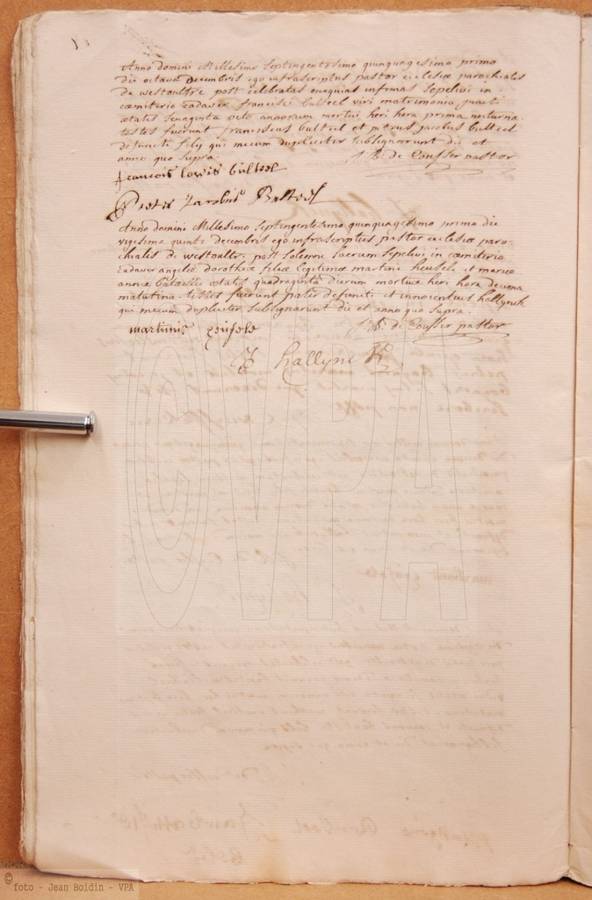 Anno domini Millesimo septingentesimo quinquagesimo primo
die octava decembris ego infrascriptus pastor ecclesiæ parochialis
de westoultre post celebratas exequias infimas sepelivi in
cœmiterio cadaver francisci bulteel viri matrimonio juncti
ætatis sexaginta octo annorum mortui heri hora prima nocturna
testes fuerunt franciscus bulteel et petrus jacobus bulteel
defuncti filij qui mecum dupliciter subsignarunt die et
anno quo supra de Cousser pastor
francois lowis bulteel
Pieter Jacobus Bulteel
Anno domini Millesimo septingentesimo quinquagesimo primo die
vigesima quinta decembris ego infrascriptus pastor ecclesiæ paro-
chialis de westoulter post solemne sacrum sepelivi in cœmiterio
cadaver angelæ dorotheæ filiæ legitimæ martini heusele et mariæ
annæ ætatis quadraginta dierum mortuæ heri hora decima
matutina testes fuerunt pater defunctæ et innocentius hallynck
qui mecum dupliciter subsignarunt die et anno quo supra
de Cousser pastor
martinus
J hallynck
© foto - Jean Boidin - VPA
©VPA